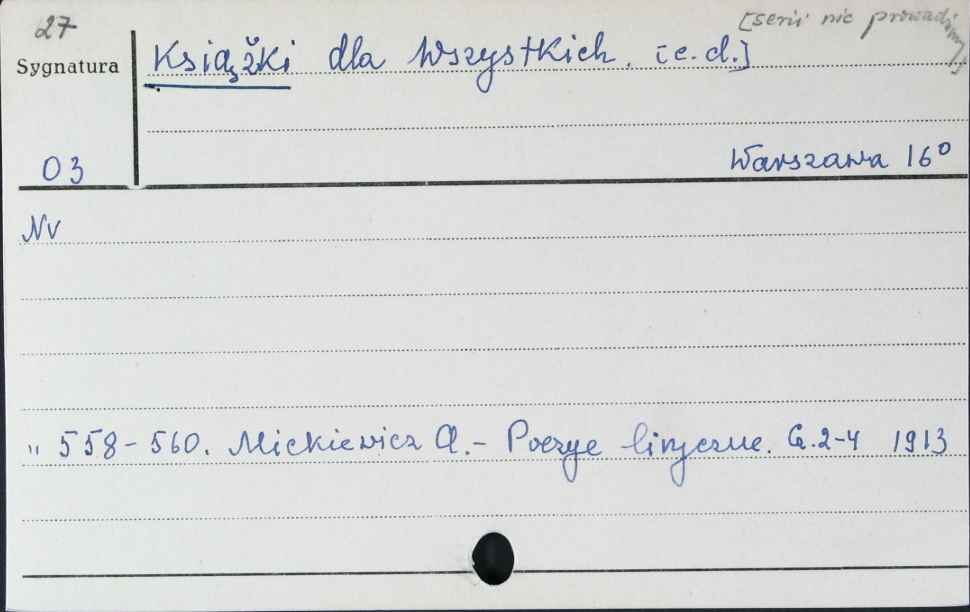 27
[serii nie prowadzimy]
Sygnatura
Książki dla Wszystkich. [c.d.]
03
Warszawa 16°
Nr
" 558-560. Mickiewicz A.- Poezye liryczne. Cz.2-4 1913